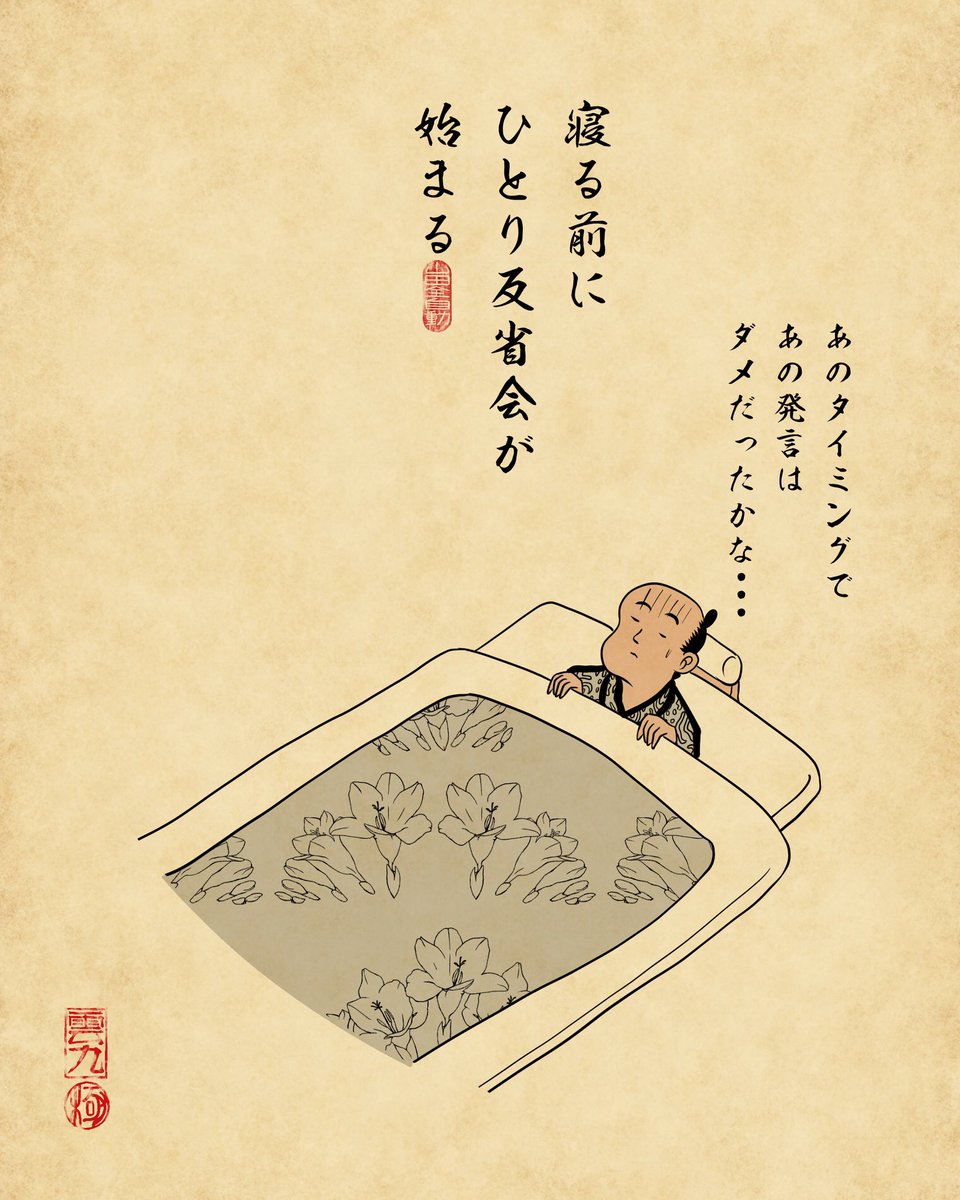 寝る前に
ひとり反省会が
始まる
あのタイミングで
あの発言は
ダメだったかな・・・